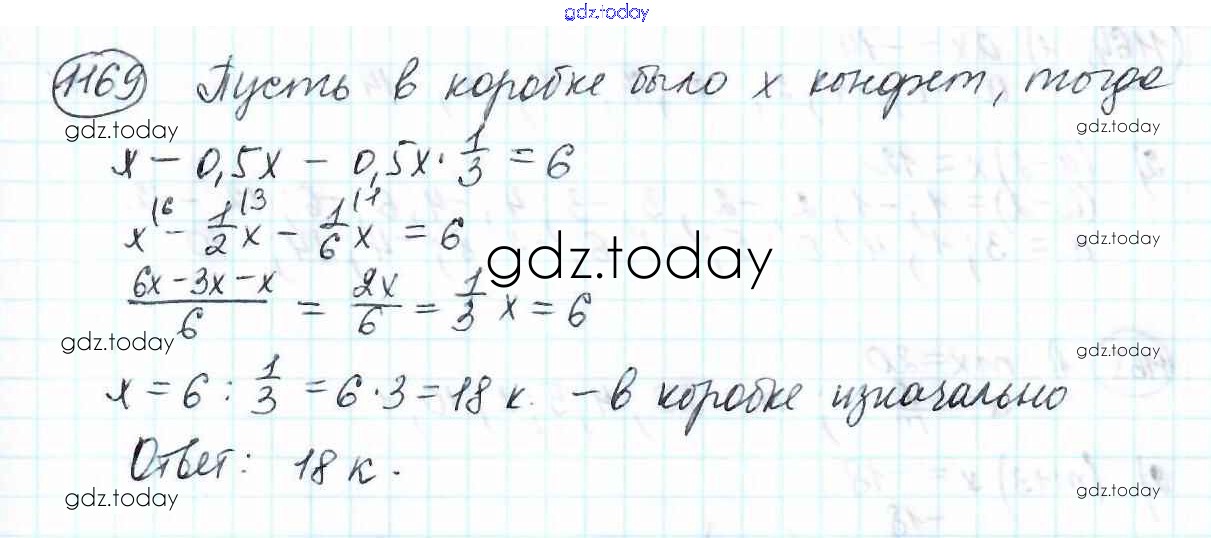 gdz.today
1169 Пусть в коробке было x конфет, тогда
gdz.today gdz.today
x - 0,5x - 0,5x · 1/3 = 6
x|6 - 1/2|3 x - 1/6|1 x = 6
gdz.today gdz.today
(6x - 3x - x)/6 = 2x/6 = 1/3 x = 6
gdz.today gdz.today
x = 6 : 1/3 = 6 · 3 = 18 к. - в коробке изначально
Ответ: 18 к.
gdz.today gdz.today